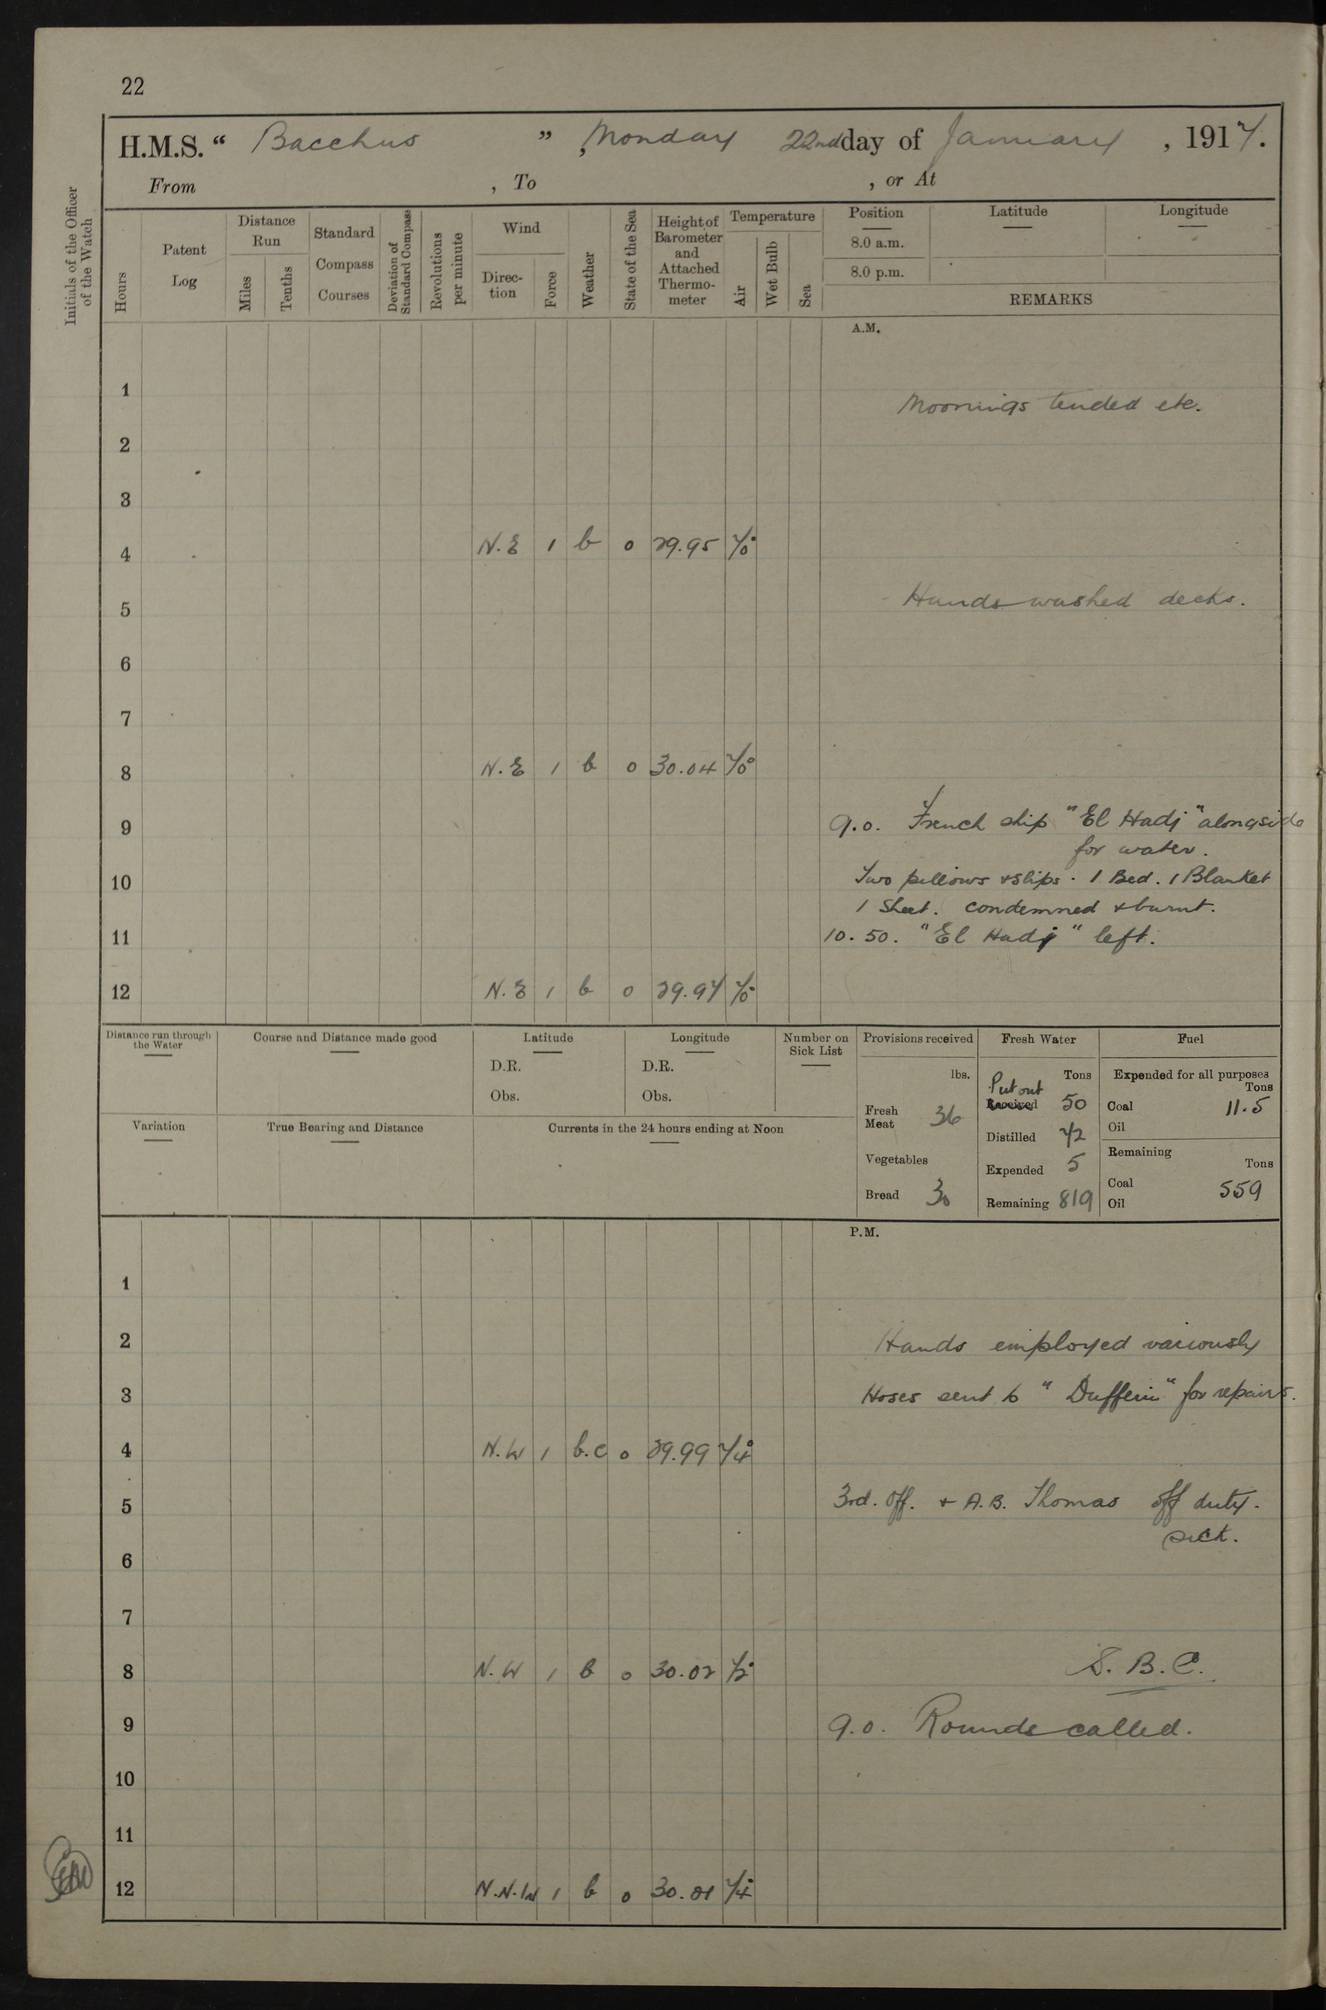 22
H.M.S. " Bacchus ", Monday 22nd day of January, 1917.
From , To , or At
Initials of the Officer of the Watch
Hours
Patent Log
Distance Run
Miles
Tenths
Standard Compass Courses
Deviation of Standard Compass
Revolutions per minute
Wind
Direction
Force
Weather
State of the Sea
Height of Barometer and Attached Thermometer
Temperature
Air
Wet Bulb
Sea
Position Latitude Longitude
8.0 a.m.
8.0 p.m.
REMARKS
A.M.
1
Moorings tended etc.
2
3
4 N.E 1 b 0 29.95 70°
5 Hands washed decks.
6
7
8 N.E 1 b 0 30.04 70°
9 9.0. French ship "El Hadj" alongside
for water.
10 Two pillows & slips. 1 Bed. 1 Blanket
1 Sheet. condemned & burnt.
11 10.50. "El Hadj" left.
12 N.E 1 b 0 29.97 70°
Distance run through the Water
Course and Distance made good
Latitude
D.R.
Obs.
Longitude
D.R.
Obs.
Number on Sick List
Variation
True Bearing and Distance
Currents in the 24 hours ending at Noon
Provisions received
lbs.
Fresh Meat 36
Vegetables
Bread 30
Fresh Water
Tons
Put out
Received 50
Distilled 72
Expended 5
Remaining 819
Fuel
Expended for all purposes
Tons
Coal 11.5
Oil
Remaining
Tons
Coal 559
Oil
P.M.
1
2 Hands employed variously
3 Hoses sent to "Dufferin" for repairs.
4 N.W 1 b.c 0 29.99 74°
5 3rd. Off. & A.B. Thomas off duty.
sick.
6
7
8 N.W 1 b 0 30.02 72° S.B.C.
9 9.0. Rounds called.
10
11
12 N.N.W 1 b 0 30.01 74°